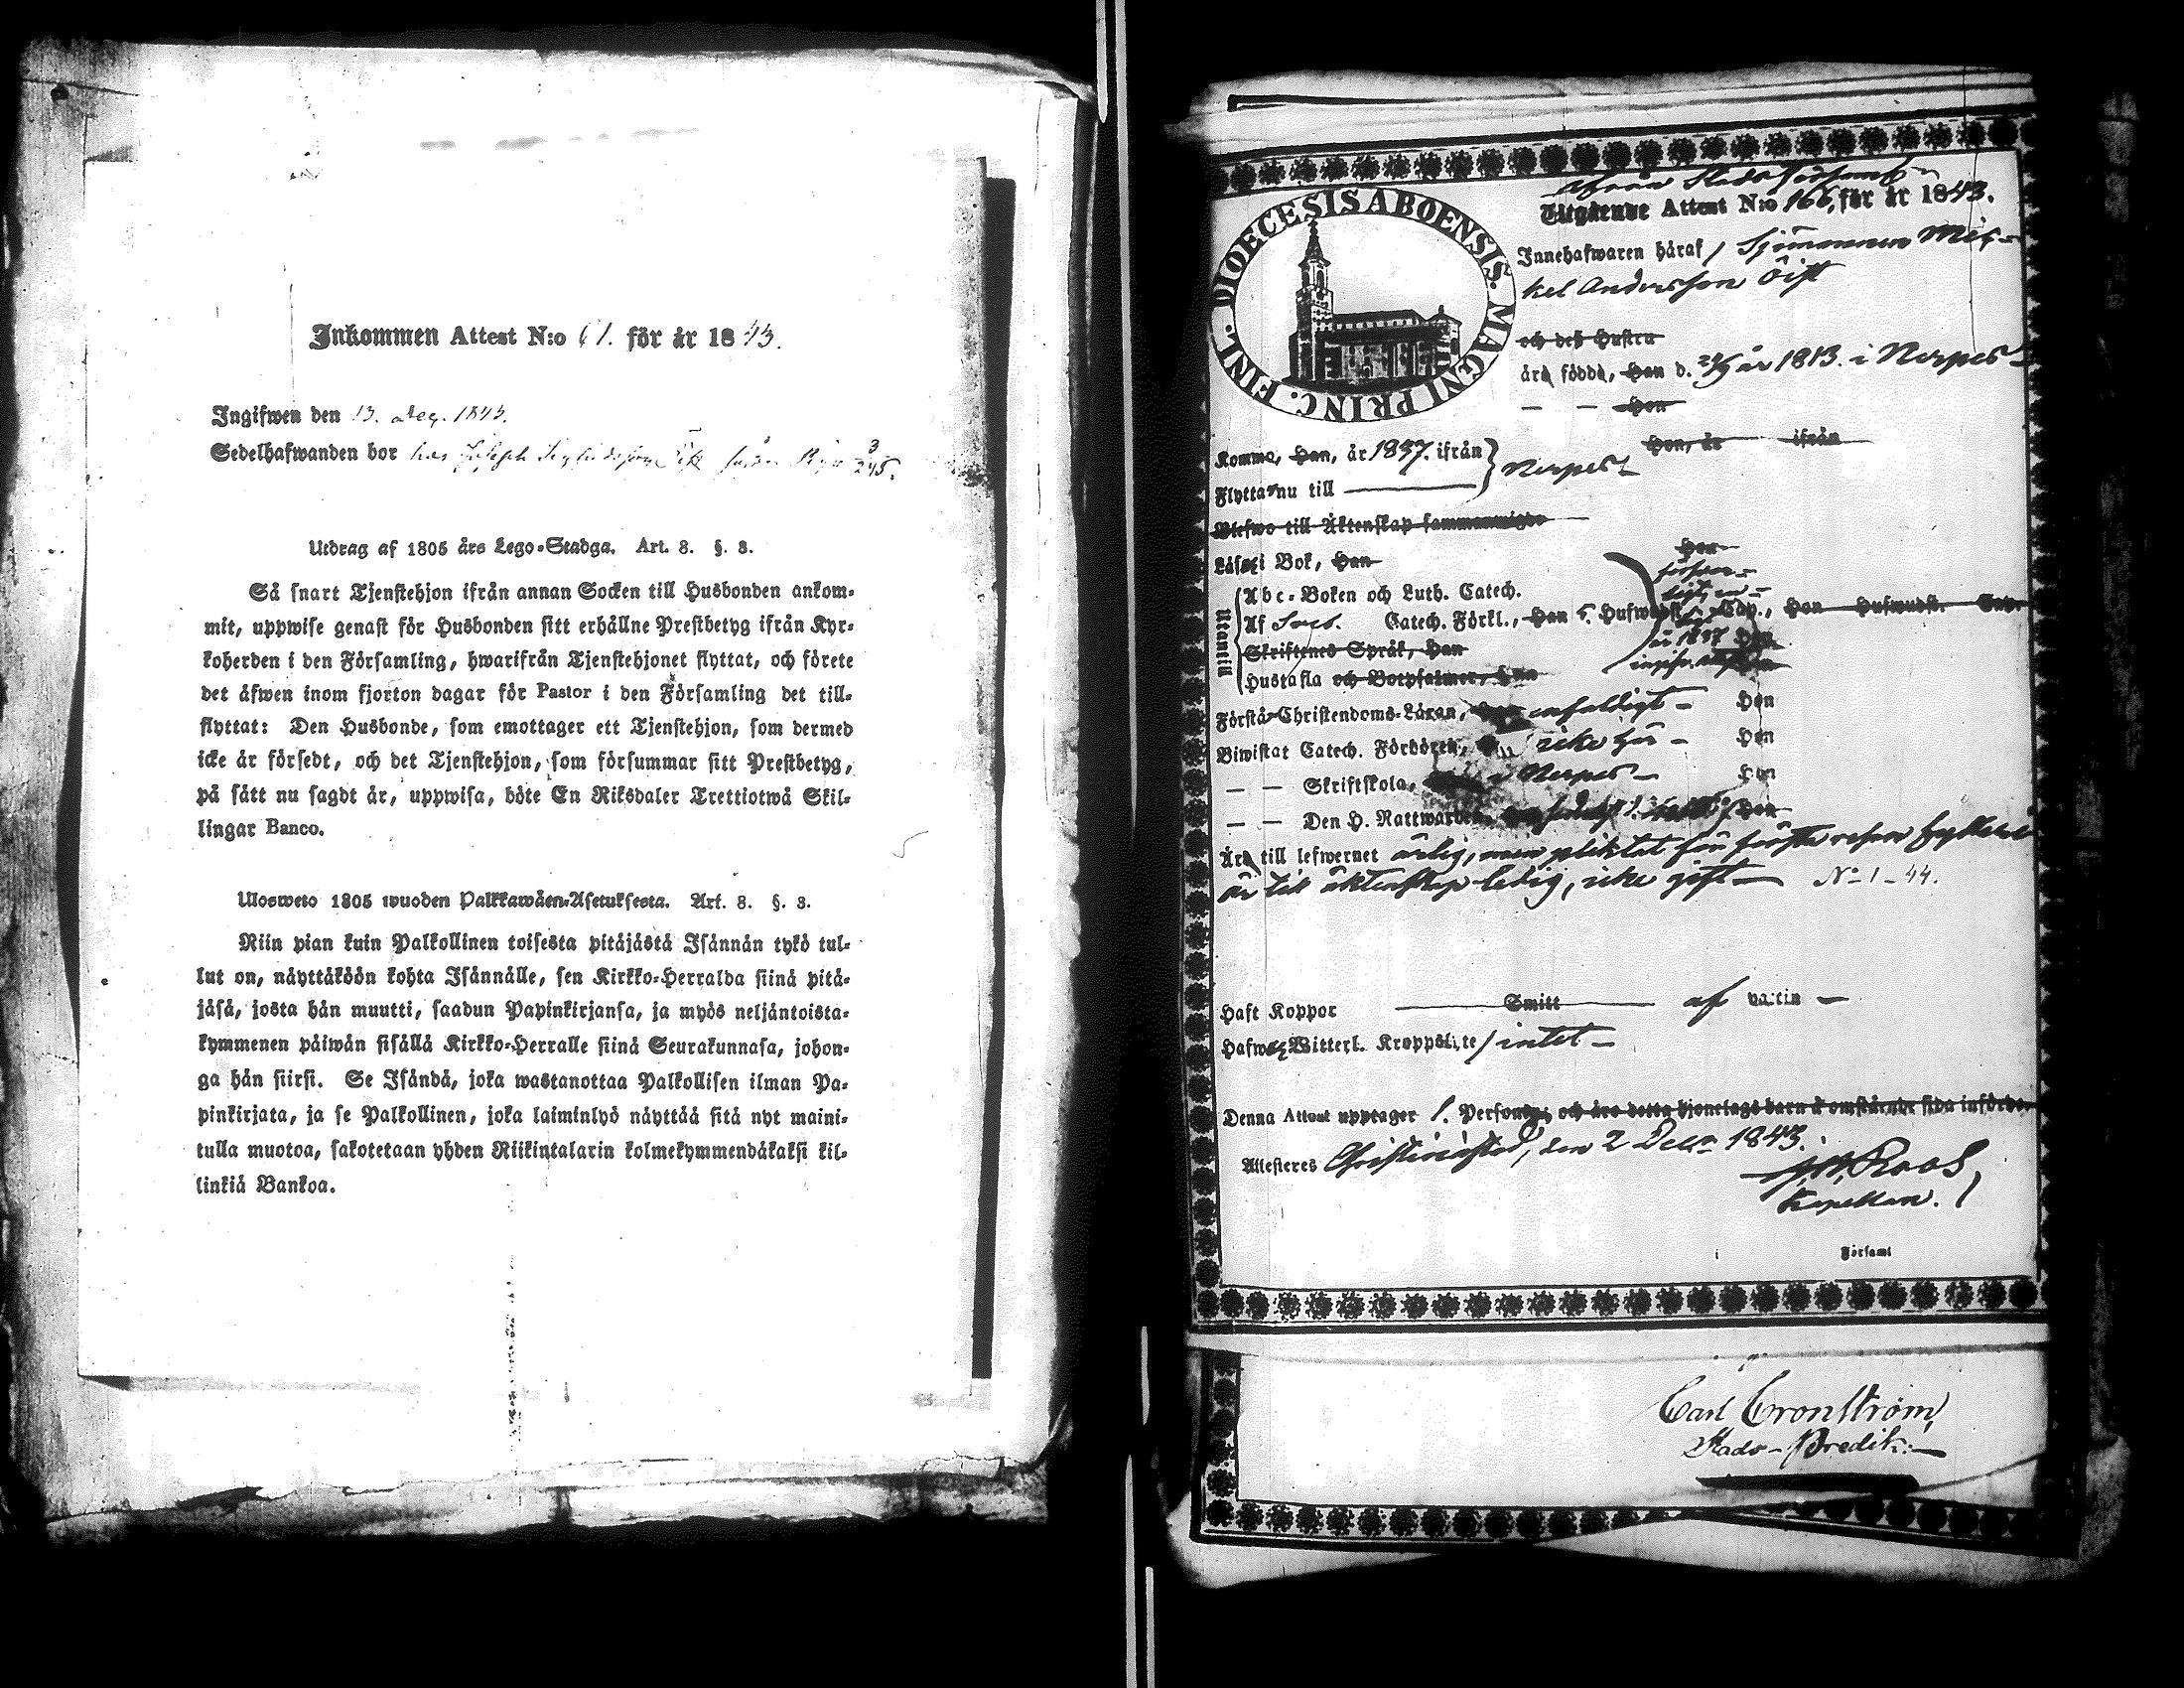 Inkommen Attest N:o 61. för år 1843.
Ingifwen den 13. Dec. 1843.
Sedelhafwanden bor hos Joseph
Utdrag af 1805 års Lego-Stadga. Art. 8. §. 3.
Så snart Tjenstehjon ifrån annan Socken till Husbonden ankom-
mit, uppwise genast för Husbonden sitt erhållne Prestbetyg ifrån Kyr-
koherden i den Församling, hwarifrån Tjenstehjonet flyttat, och förete
det äfwen inom fjorton dagar för Pastor i den Församling det till-
flyttat: Den Husbonde, som emottager ett Tjenstehjon, som dermed
icke är försedt, och det Tjenstehjon, som försummar sitt Prestbetyg,
på sätt nu sagdt är, uppwisa, böte En Riksdaler Trettiotwå Skil-
lingar Banco.
Ulosweto 1805 wuoden Palkkawäen-Asetuksesta. Art. 8. §. 3.
Niin pian kuin Palkollinen toisesta pitäjästä Isännän tykö tul-
lut on, näyttäköön kohta Isännälle, sen Kirkko-Herralda siinä pitä-
jäsä, josta hän muutti, saadun Papinkirjansa, ja myös neljäntoista-
kymmenen päiwän sisällä Kirkko-Herralle siinä Seurakunnasa, johon-
ga hän siirsi. Se Isändä, joka wastanottaa Palkollisen ilman Pa-
pinkirjata, ja se Palkollinen, joka laiminlyö näyttää sitä nyt maini-
tulla muotoa, sakotetaan yhden Riikintalarin kolmekymmendäkaksi kil-
linkiä Bankoa.
DIOECESIS ABOENSIS. MAGNI PRINC. FINL.
ifrån Stads Församl.
Utgående Attest N:o 166, för år 1843.
Innehafwaren häraf, Sjömannen Mic-
kel Andersson Öist
och des Hustru
äro födde, Han d. år 1813. i Nerpes
— — Hon
Komne, Han, år 1837. ifrån Nerpes Hon, år ifrån
Flytta nu till
Blefwo till Äktenskap sammanwigde
Läsa i Bok, Han Hon
Utantill
Abc-Boken och Luth. Catech.
Af Sveb. Catech. Förkl., Han 5. Hufwudst. Cap., Hon Hufwudst. Cap.
Skriftenes Språk, Han Hon
Hustafla och Botpsalmer, Han Hon
Förstå Christendoms-Läran, enfaldigt — Hon
Biwistat Catech. Förhören, icke här — Hon
— — Skriftskola, i Nerpes — Hon
— — Den H. Nattwarden, Hon
Äro till lefwernet ärlig, men pliktat för första resan fylleri
är till äktenskap ledig, icke gift — N:o 1 - 44.
Haft Koppor Smitt af vaccin —
Hafwa Witterl. Kroppslyte, intet —
Denna Attest upptager 1. Person, och äro detta hjonelags barn å omstående sida införde.
Attesteres Christinæstad, den 2 Decr 1843.
Roos,
Kapellan.
i Församl
Carl Cronström,
Stads-Predik: